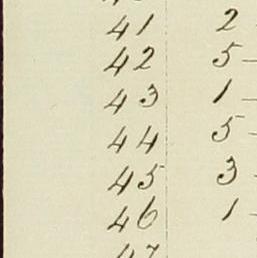 41 2
42 5
43 1
44 5
45 3
46 1
47